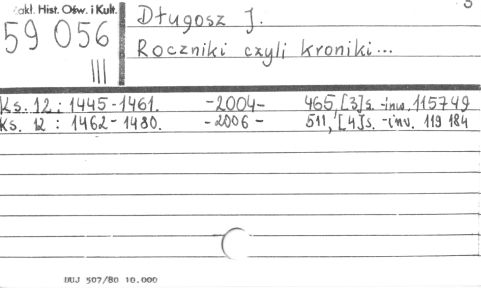 Zakł. Hist. Ośw. i Kult.
59 056
III
Długosz J.
Roczniki czyli kroniki...
3
Ks. 12 : 1445-1461. -2004- 465,[3]s. -inw. 115749
Ks. 12 : 1462-1480. -2006- 511,[4]s. -inv. 119 184
DUJ 507/80 10.000